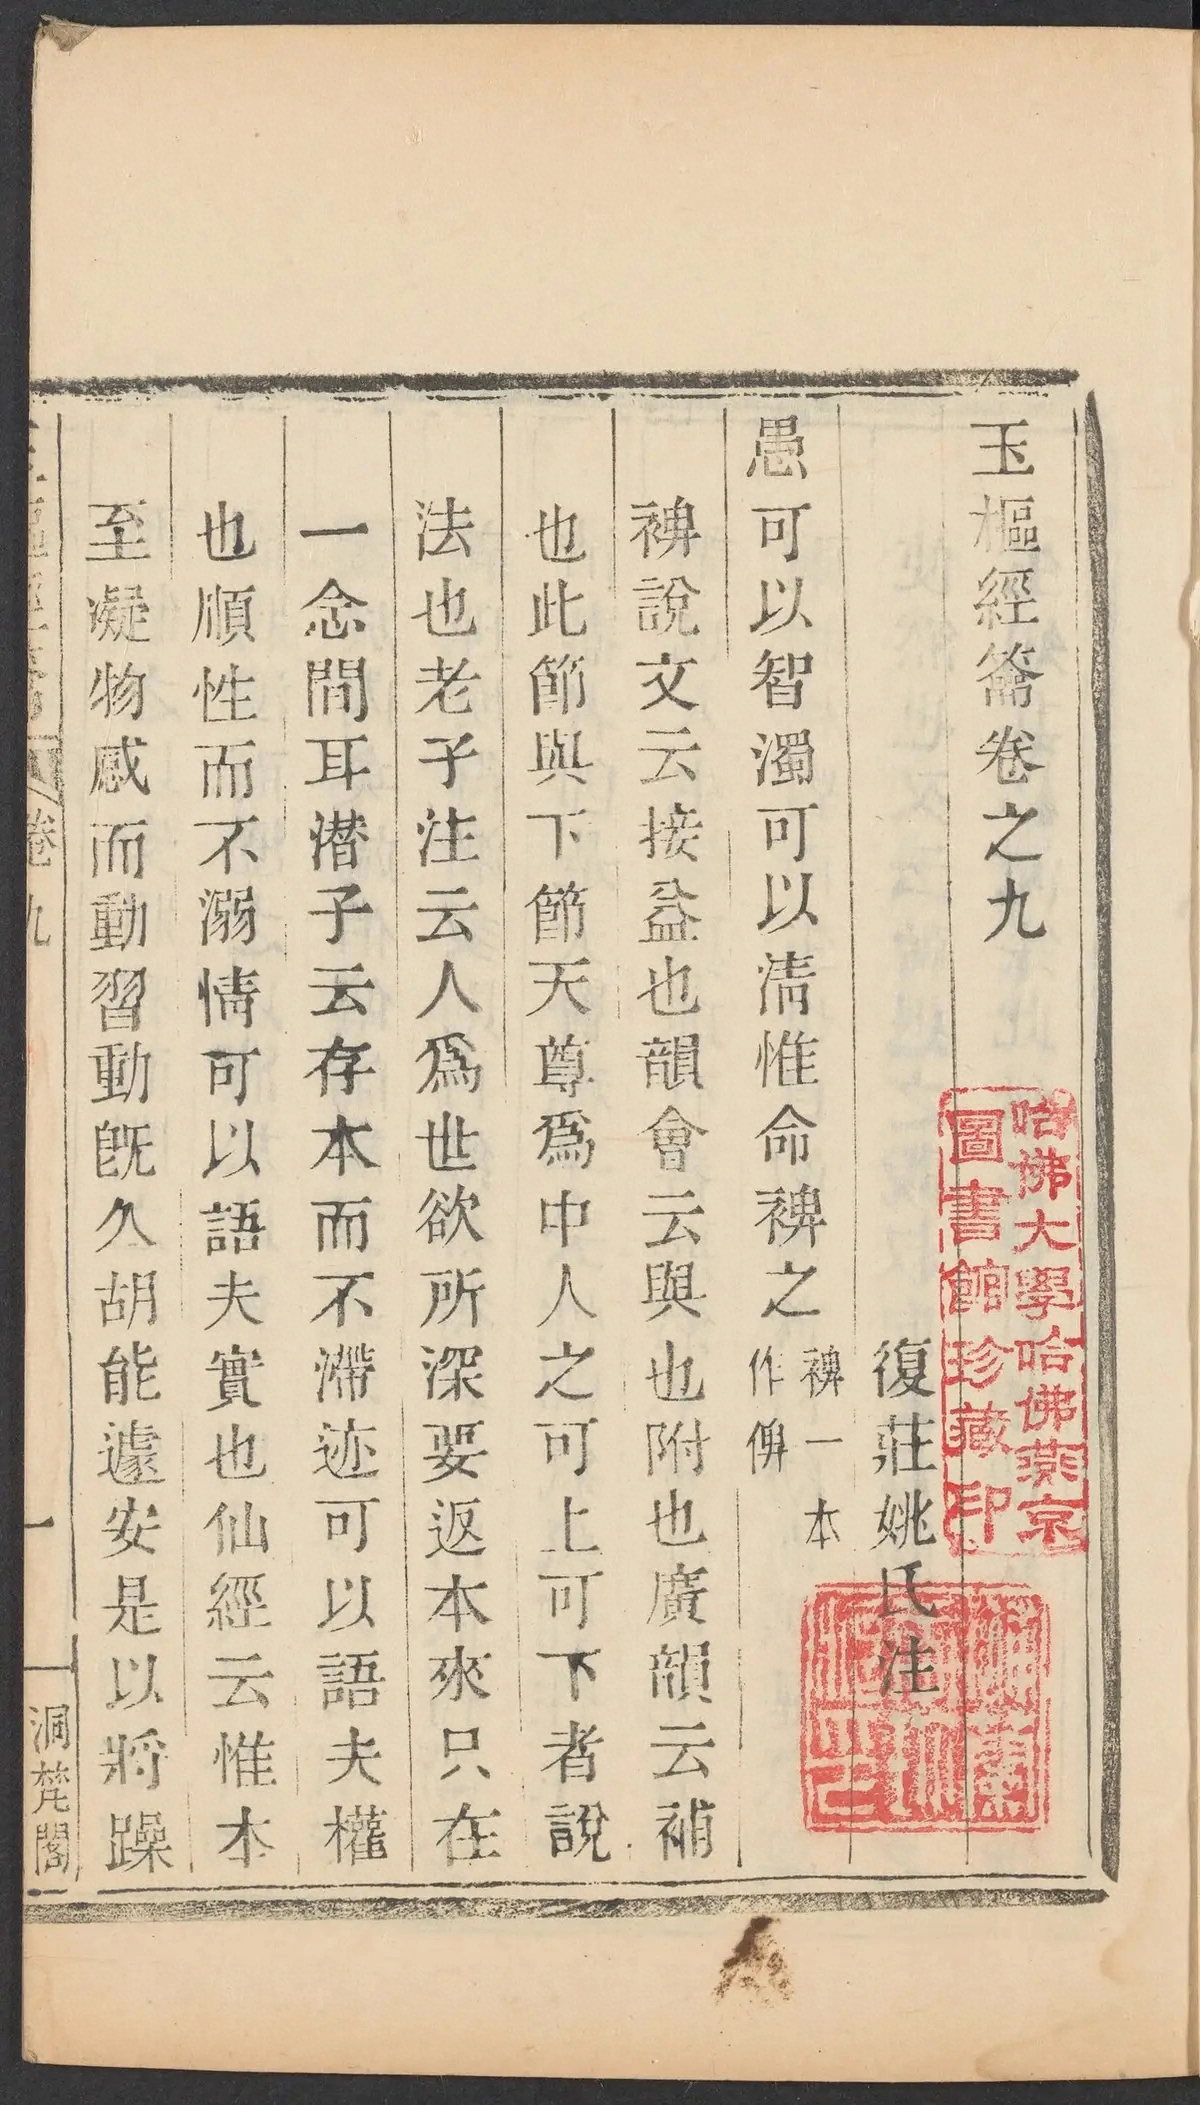 玉樞經籥卷之九
復莊姚氏注
愚可以智濁可以清惟命裨之裨一本作俾
裨說文云接益也韻會云與也附也廣韻云補
也此節與下節天尊爲中人之可上可下者說
法也老子注云人爲世欲所深要返本來只在
一念間耳潛子云存本而不滯迹可以語夫權
也順性而不溺情可以語夫實也仙經云惟本
至凝物感而動習動旣久胡能遽安是以將躁
卷九
一
洞梵閣
哈佛大學哈佛燕京
圖書館珍藏印